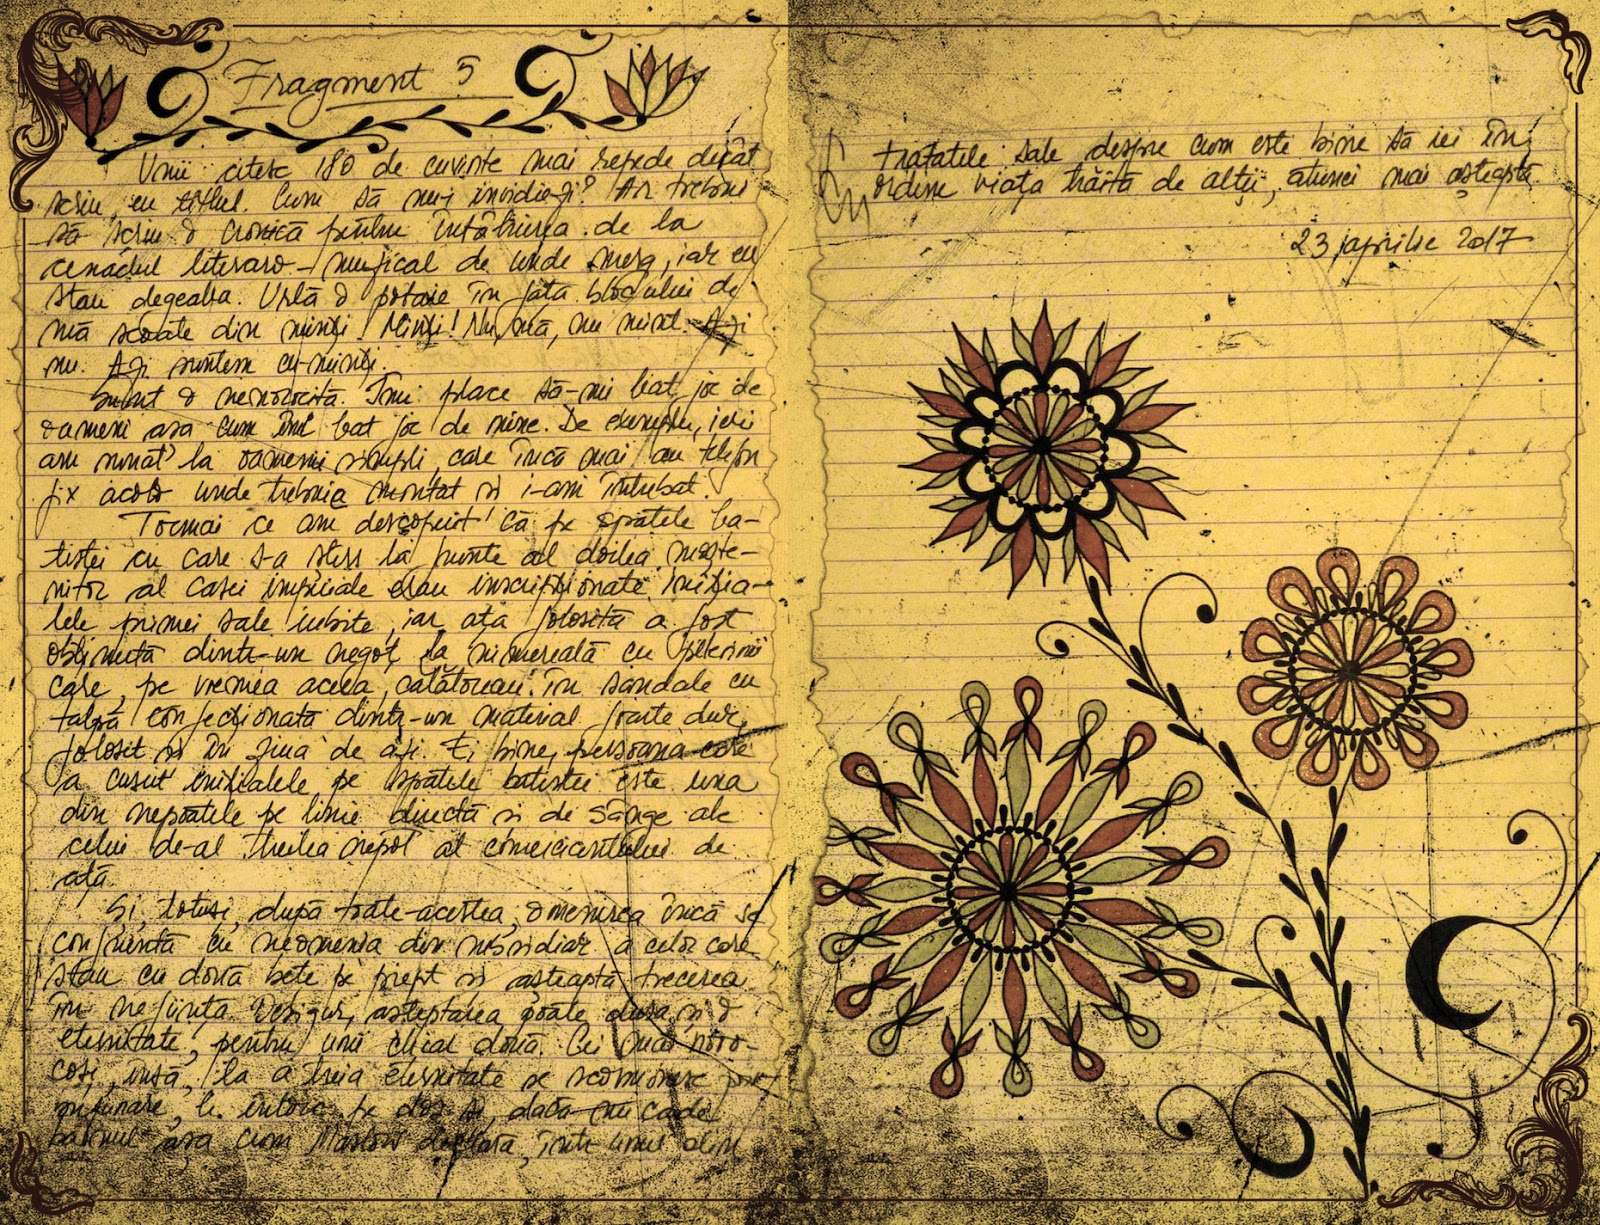 Fragment 5
Unii citesc 180 de cuvinte mai repede decât
scriu eu titlul. Cum să nu-i invidiezi? Ar trebui
să scriu o cronică pentru întâlnirea de la
cenaclul literaro-muzical de unde merg, iar eu
stau degeaba. Urlă o potaie în fața blocului de
mă scoate din minți! Minți! Nu, mă, nu mint. Azi
nu. Azi suntem cu-minți.
Sunt o nenorocită. Îmi place să-mi bat joc de
oameni așa cum îmi bat joc de mine. De exemplu, ieri
am sunat la oameni simpli, care încă mai au telefon
fix acolo unde trebuia montat și i-am întrebat.
Tocmai ce am descoperit că pe spatele ba-
tistei cu care s-a șters la frunte al doilea moște-
nitor al casei imperiale erau inscripționate iniția-
lele primei sale iubite, iar ața folosită a fost
obținută dintr-un negoț la nimereală cu pelerinii
care, pe vremea aceea, călătoreau în sandale cu
talpă confecționată dintr-un material foarte dur,
folosit și în ziua de azi. Ei bine, persoana care
a cusut inițialele pe spatele batistei este una
din nepoatele pe linie directă și de sânge ale
celui de-al treilea nepot al comerciantului de
ață.
Și, totuși, după toate acestea, omenirea încă se
confruntă cu neomenia din subsidiar a celor care
stau cu două bețe pe piept și așteaptă trecerea
în neființă. Desigur, așteptarea poate dura și o
eternitate, pentru unii chiar două. Cei mai noro-
coși, însă, la a treia eternitate se scormonesc
în funare, le întorc pe dos și, dacă nu cade
banul așa cum Maslow declara, într-unul din
tratatele sale despre cum este bine să iei în
ordine viața trăită de alții, atunci mai așteaptă.
23 aprilie 2017